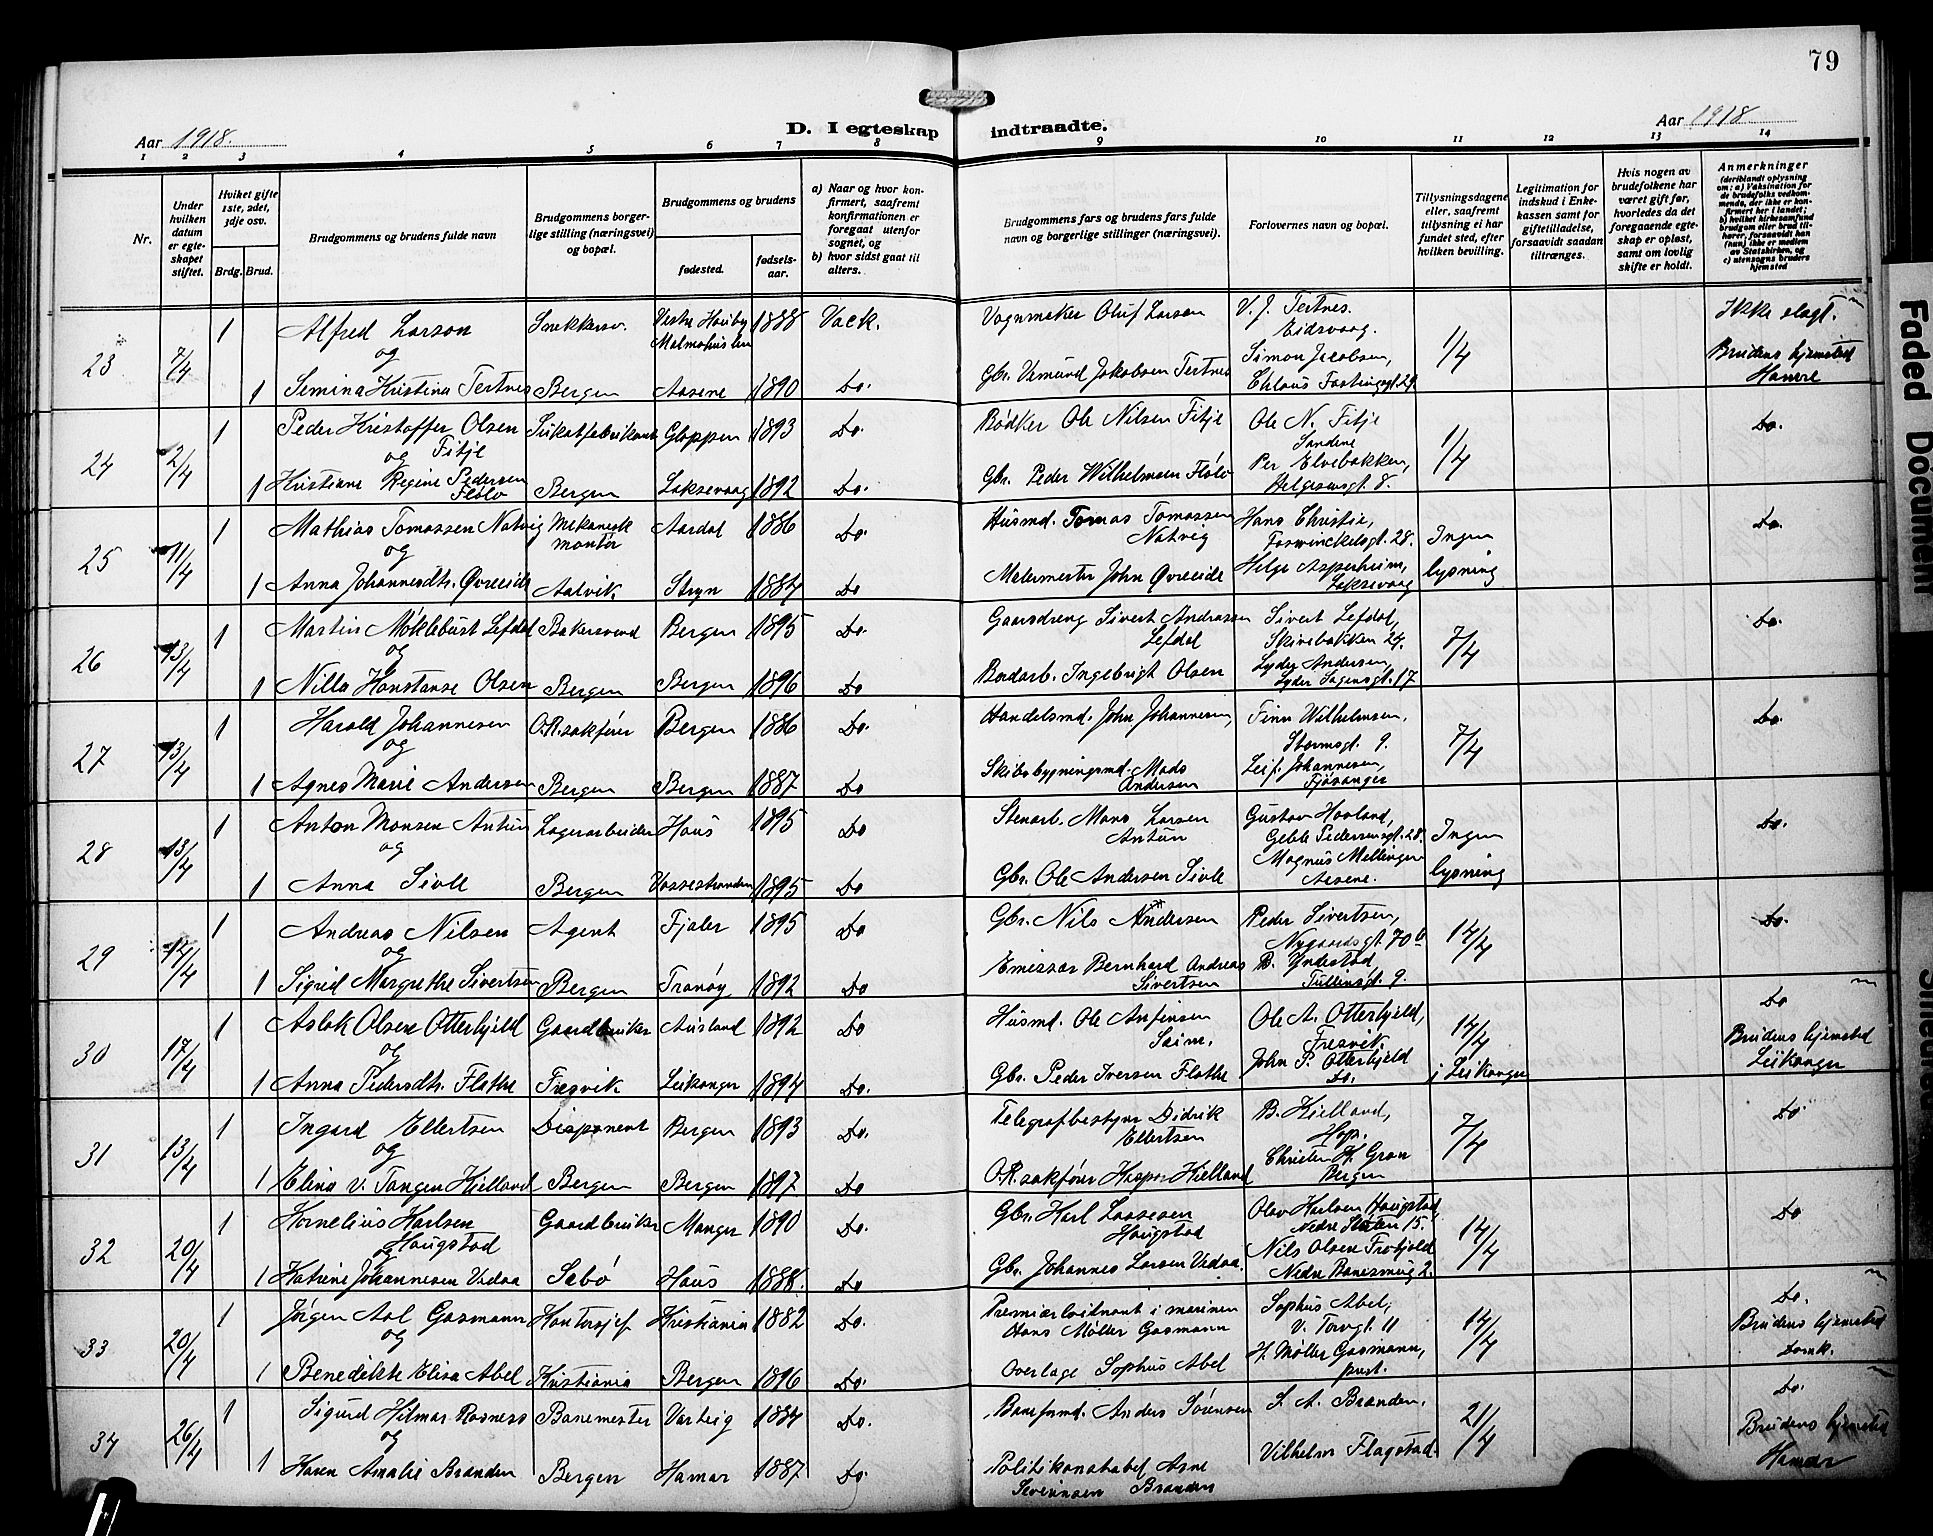 79
Aar 1918.
D. I egteskap indtraadte.
Aar 1918
1 2 3 4 5 6 7 8 9 10 11 12 13 14
Nr.
Under hvilken datum er egteskapet stiftet.
Hviket gifte 1ste, 2det, 3dje osv.
Brdg. Brud.
Brudgommens og brudens fulde navn
Brudgommens borgerlige stilling (næringsvei) og bopæl.
Brudgommens og brudens
fødested.
fødselsaar.
a) Naar og hvor konfirmert, saafremt konfirmationen er foregaat utenfor sognet, og
b) hvor sidst gaat til alters.
Brudgommens fars og brudens fars fulde navn og borgerlige stillinger (næringsvei).
Forlovernes navn og bopæl.
Tillysningsdagene eller, saafremt tillysning ei har fundet sted, efter hvilken bevilling.
Legitimation for indskud i Enkekassen samt for giftetilladelse, forsaavidt saadan tiltrænges.
Hvis nogen av brudefolkene har været gift før, hvorledes da det foregaaende egteskap er opløst, samt om lovlig skifte er holdt.
Anmerkninger
(deriblandt oplysning om: a) Vaksination for de brudefolks vedkommende, der ikke er konfirmert her i landet; b) hvilket kirkesamfund brudgom eller brud tilhører, forsaavidt han (hun) ikke er medlem av Statskirken, og c) utensogns bruders hjemsted
23 7/4 1 Alfred Larson Snekkersv. Vestre Malmøhus len 1888 Vack. Vognmaker Oluf Larsen V. J. Tertnes. Eidsvaag. 1/4 Ikke slegt.
og
1 Semina Kristina Tertnes Bergen Aasene 1890 Do. Gbr. Vemund Jakobsen Tertnes Simon Jacobsen, Chlaus Fastingsgt. 29 Brudens hjemsted Hamre
24 2/4 1 Peder Kristoffer Olsen Fitje Gloppen 1893 Do. Bødker Ole Nilsen Fitje Ole N. Fitje Sandene 1/4 Do.
og
1 Kristiane Regine Pedersen Flølo Bergen Laksevaag 1892 Do. Gbr. Peder Wilhelmsen FløLo Per Elvebakken, Helgesensgt. 8.
25 11/4 1 Mathias Tomassen Natvig Mekanisk montør Aardal 1886 Do. Husmd. Tomas Tomassen Natvig Hans Christie, Foswinckelsgt. 28. Ingen lysning Do.
og
1 Anna Johannesdtr. Øvreeide Aalvik. Stryn 1884 Do Malermester John Øvreeide Helge Asperheim, Laksevaag
26 13/4 1 Martin Møklebust Lefdal Bakersvend Bergen 1895 Do. Gaardsdreng Sivert Andreasen Lefdal Sivert Lefdal, Skivebakken 24. 7/4 Do.
og
1 Nilla Konstanse Olsen Bergen Bergen 1896 Do Bordarb. Ingebrigt Olsen Lyder Andersen, Lyder Sagensgt. 17
27 13/4 1 Harald Johannesen O.R.sakfører Bergen 1886 Do. Handelsmd. John Johannesen, Finn Wilhelmsen, Stormsgt. 9. 7/4 Do.
og
1 Agnes Marie Andersen Bergen Bergen 1887 Do Skibsbygningsmd. Mads Andersen Leif Johannesen, Fjøsanger
28 13/4 1 Anton Monsen Antun Lagerarbeider Haus 1895 Do Stenarb. Mons Larsen Antun Gustav Hovland, Geble Pedersensgt. 28. Ingen lysning Do.
og
1 Anna Sivle Bergen Vossestranden 1895 Do Gbr. Ole Andersen Sivle Magnus Mellingen Aasene.
29 14/4 1 Andreas Nilsen Agent Fjaler 1895 Do Gbr. Nils Andersen Peder Sivertsen, Nygaardsgt. 70 b 14/4 Do.
og
1 Sigrid Margrethe Sivertsen Bergen Tranøy 1892 Do Emissær Bernhard Andreas Sivertsen B. Yndestad Tullinsgt. 9.
30 17/4 1 Aslak Olsen Otterhjeld Gaardbruker Ausland 1892 Do Husmd. Ole Anfinsen Seim. Ole A. Otterhjeld, Fresvik. 14/4 Do
og
1 Anna Pedersdtr. Flathe Fresvik Leikanger 1894 Do. Gbr. Peder Iversen Flathe John P. Otterhjeld Do. i Leikanger Brudens hjemsted Leikanger
31 13/4 1 Ingard Ellertsen Disponent Bergen 1893 Do. Telegrafbestyrer Didrik Ellertsen B. Kielland, Hop. 7/4 Do
og
1 Elina v. Tangen Kielland Bergen Bergen 1897 Do O.R.sakfører Kasper Kielland Christen K. Gran Bergen
32 20/4 1 Kornelius Karlsen Haugstad Gaardbruker Manger 1890 Do. Gbr. Karl Lassesen Haugstad Olav Karlsen Haugstad, Nedre Sløten 15. 14/4 Do
og
1 Katrine Johannesen Vedaa Sæbø Haus 1888. Do Gbr. Johannes Larsen Vedaa. Nils Olsen Nedre 2.
33 20/4 1 Jørgen Aal Gasmann Kontorsjef Kristiania 1882 Do. Premierløitnant i marinen Hans Møller Gasmann Sophus Abel, V. Torvgt. 11 14/4 Do.
og
1 Benedikte Elisa Abel Kristiania Bergen 1896 Do. Overlæge Sophus Abel H. Møller Gasmann, prest. Brudens hjemsted Domk.
34 26/4 1 Sigurd Hilmar Rosness Banemester Varteig 1884 Do. Baneformd. Anders Sørensen S. A. Branden. 21/4 Do.
og
1 Karen Amalie Branden Bergen Hamar 1887 Do. Politikonstabel Arne Severinsen Branden Vilhelm Flagstad. Brudens hjemsted Hamar
Faded Document